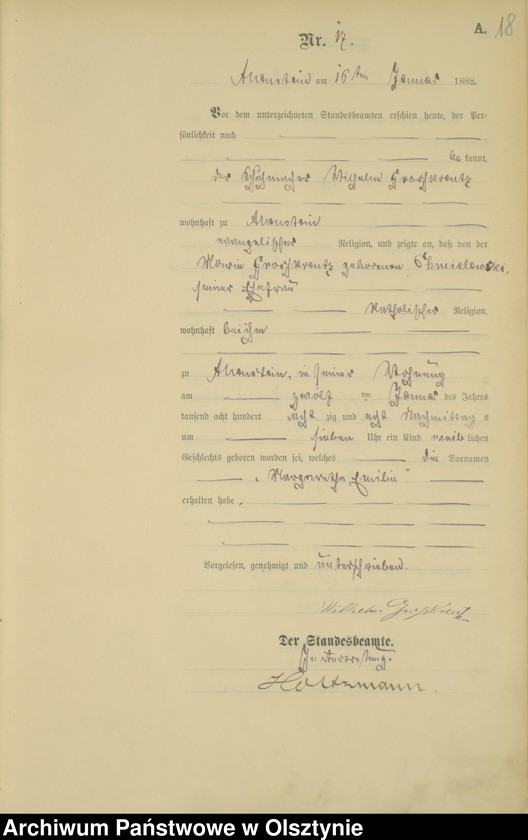 A. 18
Nr. 17.
Allenstein am 16ten Januar 1888.
Vor dem unterzeichneten Standesbeamten erschien heute, der Per-
sönlichkeit nach
kannt,
der Schuhmacher Wilhelm Groschkreutz
wohnhaft zu Allenstein
evangelischer Religion, und zeigte an, daß von der
Marie Groschkreutz geborenen Chmielewski,
seiner Ehefrau
katholischer Religion,
wohnhaft bei ihm
zu Allenstein, in seiner Wohnung
am zwölf ten Januar des Jahres
tausend acht hundert acht zig und acht Nachmittags
um sieben Uhr ein Kind weib lichen
Geschlechts geboren worden sei, welches die Vornamen
„Margarethe Emilie"
erhalten habe.
Vorgelesen, genehmigt und unterschrieben.
Wilhelm Groschkreutz
Der Standesbeamte.
In Vertretung.
Holtzmann
Archiwum Państwowe w Olsztynie